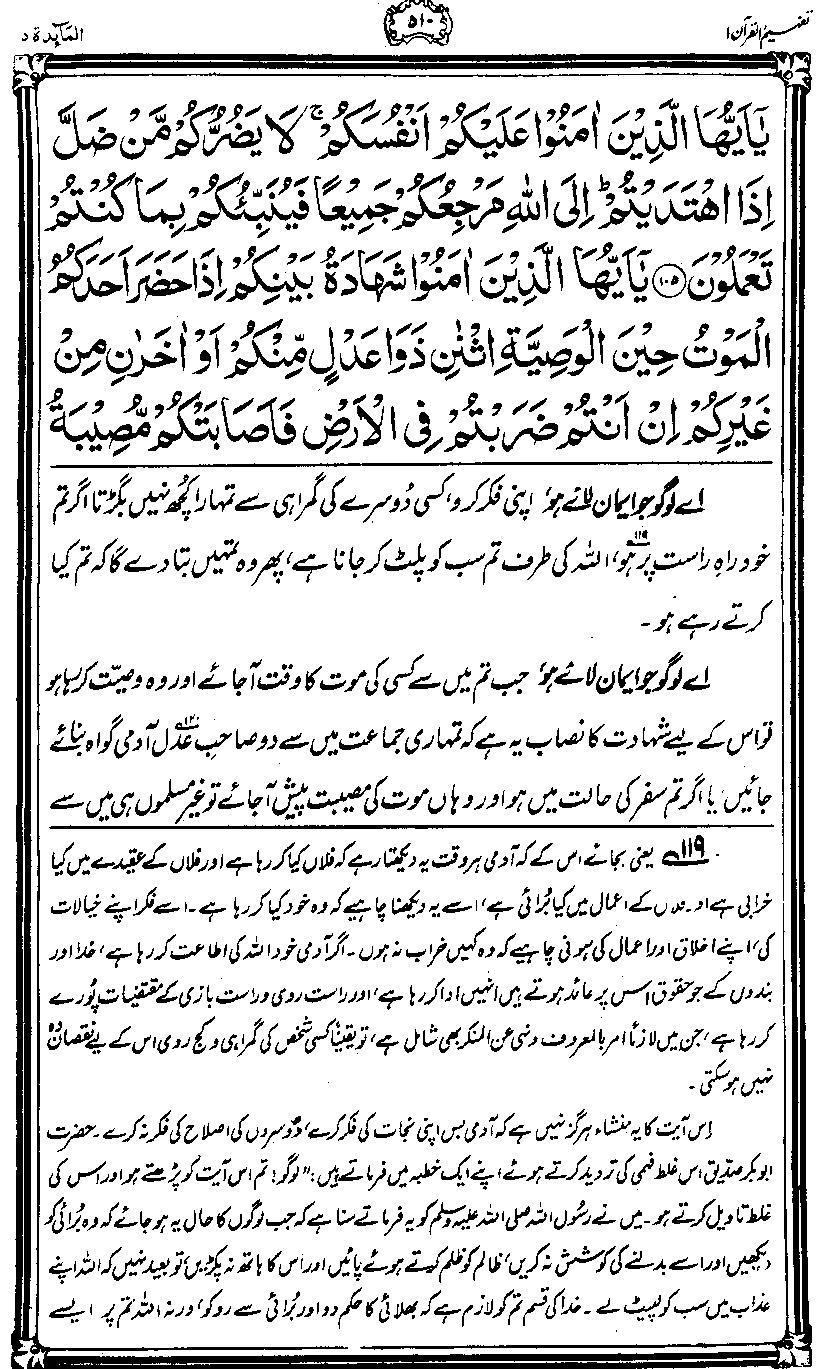 تفہیم القرآن ۱
۵۱۰
المآئدۃ ۵
يٰٓاَيُّهَا الَّذِيْنَ اٰمَنُوْا عَلَيْكُمْ اَنْفُسَكُمْ ۚ لَا يَضُرُّكُمْ مَّنْ ضَلَّ
اِذَا اهْتَدَيْتُمْ ؕ اِلَى اللّٰهِ مَرْجِعُكُمْ جَمِيْعًا فَيُنَبِّئُكُمْ بِمَا كُنْتُمْ
تَعْمَلُوْنَ ﴿۱۰۵﴾ يٰٓاَيُّهَا الَّذِيْنَ اٰمَنُوْا شَهَادَةُ بَيْنِكُمْ اِذَا حَضَرَ اَحَدَكُمُ
الْمَوْتُ حِيْنَ الْوَصِيَّةِ اثْنٰنِ ذَوَا عَدْلٍ مِّنْكُمْ اَوْ اٰخَرٰنِ مِنْ
غَيْرِكُمْ اِنْ اَنْتُمْ ضَرَبْتُمْ فِى الْاَرْضِ فَاَصَابَتْكُمْ مُّصِيْبَةُ
اے لوگو جو ایمان لائے ہو، اپنی فکر کرو، کسی دُوسرے کی گمراہی سے تمہارا کچھ نہیں بگڑتا اگر تم
خود راہِ راست پر ہو،۱۱۹ اللہ کی طرف تم سب کو پلٹ کر جانا ہے، پھر وہ تمہیں بتا دے گا کہ تم کیا
کرتے رہے ہو۔
اے لوگو جو ایمان لائے ہو، جب تم میں سے کسی کی موت کا وقت آجائے اور وہ وصیّت کر رہا ہو
تو اس کے لیے شہادت کا نصاب یہ ہے کہ تمہاری جماعت میں سے دو صاحبِ عدل۱۲۰ آدمی گواہ بنائے
جائیں، یا اگر تم سفر کی حالت میں ہو اور وہاں موت کی مصیبت پیش آجائے تو غیر مسلموں ہی میں سے
۱۱۹ یعنی بجائے اس کے کہ آدمی ہر وقت یہ دیکھتا رہے کہ فلاں کیا کر رہا ہے اور فلاں کے عقیدے میں کیا
خرابی ہے اور فلاں کے اعمال میں کیا بُرائی ہے، اسے یہ دیکھنا چاہیے کہ وہ خود کیا کر رہا ہے۔ اسے فکر اپنے خیالات
کی، اپنے اخلاق اور اعمال کی ہونی چاہیے کہ وہ کہیں خراب نہ ہوں۔ اگر آدمی خود اللہ کی اطاعت کر رہا ہے، خدا اور
بندوں کے جو حقوق اس پر عائد ہوتے ہیں انہیں ادا کر رہا ہے، اور راست روی و راست بازی کے مقتضیات پُورے
کر رہا ہے، جن میں لازماً امر بالمعروف و نہی عن المنکر بھی شامل ہے، تو یقیناً کسی شخص کی گمراہی و کج روی اس کے لیے نقصان دہ
نہیں ہو سکتی۔
اِس آیت کا یہ منشاء ہرگز نہیں ہے کہ آدمی بس اپنی نجات کی فکر کرے، دُوسروں کی اصلاح کی فکر نہ کرے۔ حضرت
ابو بکر صدّیق اس غلط فہمی کی تردید کرتے ہوئے اپنے ایک خطبہ میں فرماتے ہیں: "لوگو! تم اس آیت کو پڑھتے ہو اور اس کی
غلط تاویل کرتے ہو۔ میں نے رسُول اللہ صلی اللہ علیہ وسلم کو یہ فرماتے سنا ہے کہ جب لوگوں کا حال یہ ہو جائے کہ وہ بُرائی کو
دیکھیں اور اسے بدلنے کی کوشش نہ کریں، ظالم کو ظلم کرتے ہوئے پائیں اور اُس کا ہاتھ نہ پکڑیں، تو بعید نہیں کہ اللہ اپنے
عذاب میں سب کو لپیٹ لے۔ خدا کی قسم تم کو لازم ہے کہ بھلائی کا حکم دو اور بُرائی سے روکو، ورنہ اللہ تم پر ایسے